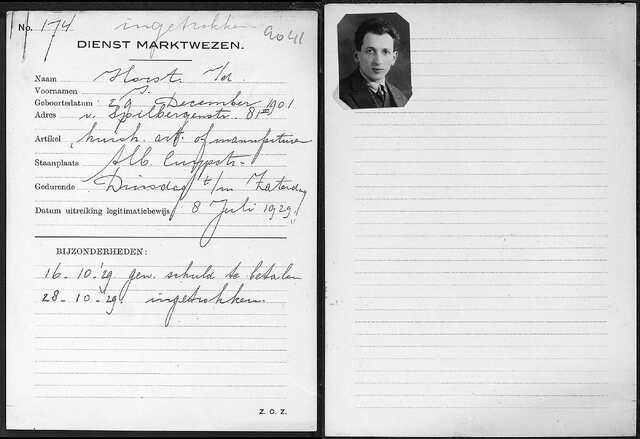 No. 174 ingetrokken 9041
DIENST MARKTWEZEN.
Naam Horst. v/d.
Voornamen J.
Geboortedatum 29 December 1901
Adres v. Spilbergenstr. 81 III
Artikel huish. art. of manufacturen
Staanplaats Alb. Cuypstr.
Gedurende Dinsdag t/m Zaterdag
Datum uitreiking legitimatiebewijs 8 Juli 1929.
BIJZONDERHEDEN:
16-10-'29 gen. schuld te betalen
28-10-'29. ingetrokken.
Z. O. Z.